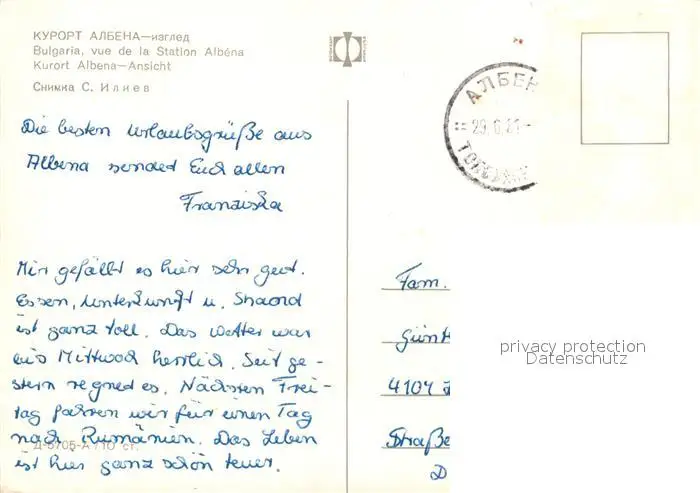 КУРОРТ АЛБЕНА—изглед
Bulgaria, vue de la Station Albéna
Kurort Albena—Ansicht
Снимка С. Илиев
Die besten Urlaubsgrüße aus
Albena sendet Euch allen
Franziska
Mir gefällt es hier sehr gut.
Essen, Unterkunft u. Strand
ist ganz toll. Das Wetter war
bis Mittwoch herrlich. Seit ge-
stern regnet es. Nächsten Frei-
tag fahren wir für einen Tag
nach Rumänien. Das Leben
ist hier ganz schön teuer.
Д-6705-А /10 ст.
АЛБЕН
Fam.
Günt
4104
Straße
D
privacy protection
Datenschutz